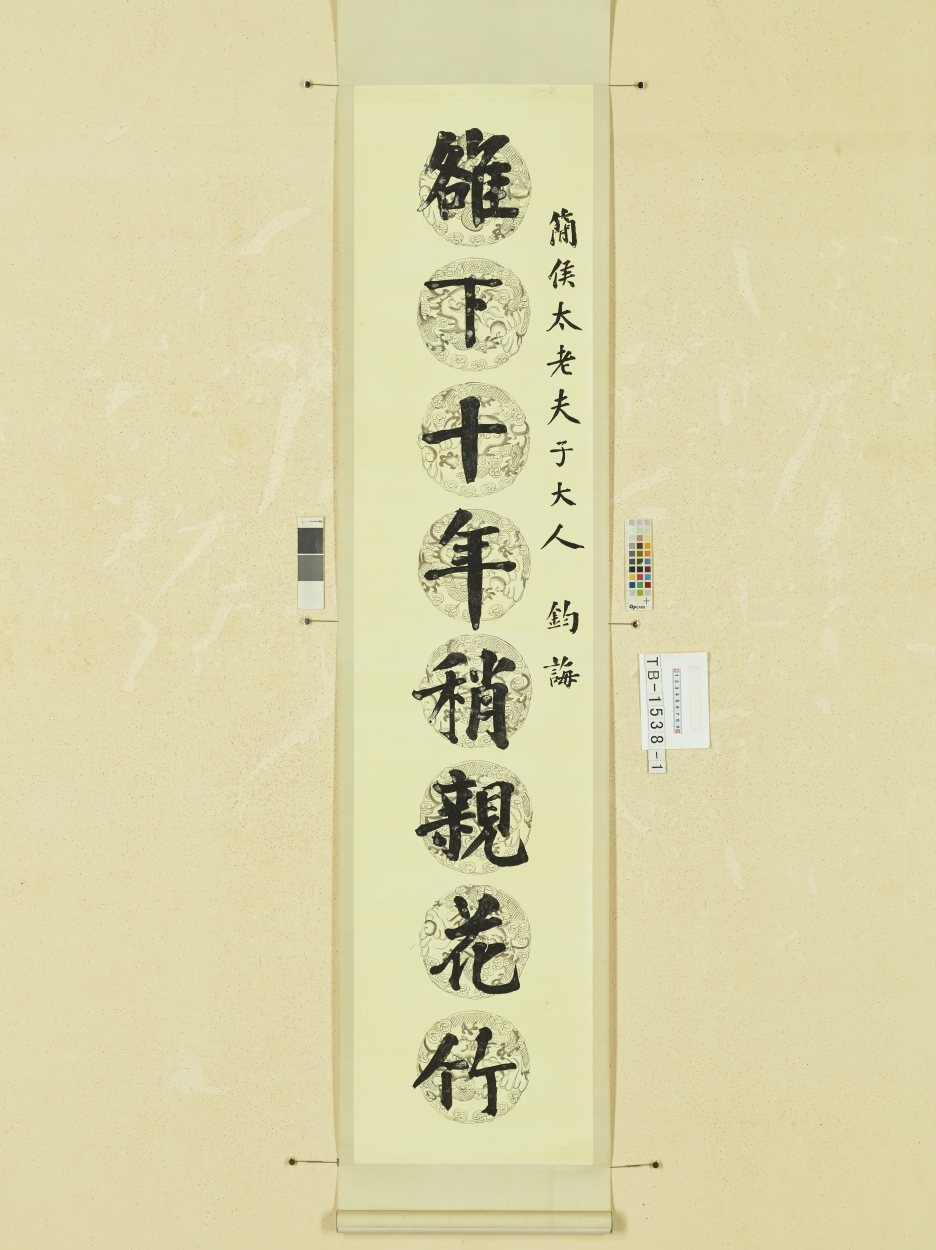 簡侯太老夫子大人 鈞誨
雒下十年稍親花竹
TB-1538-1
QPCARD